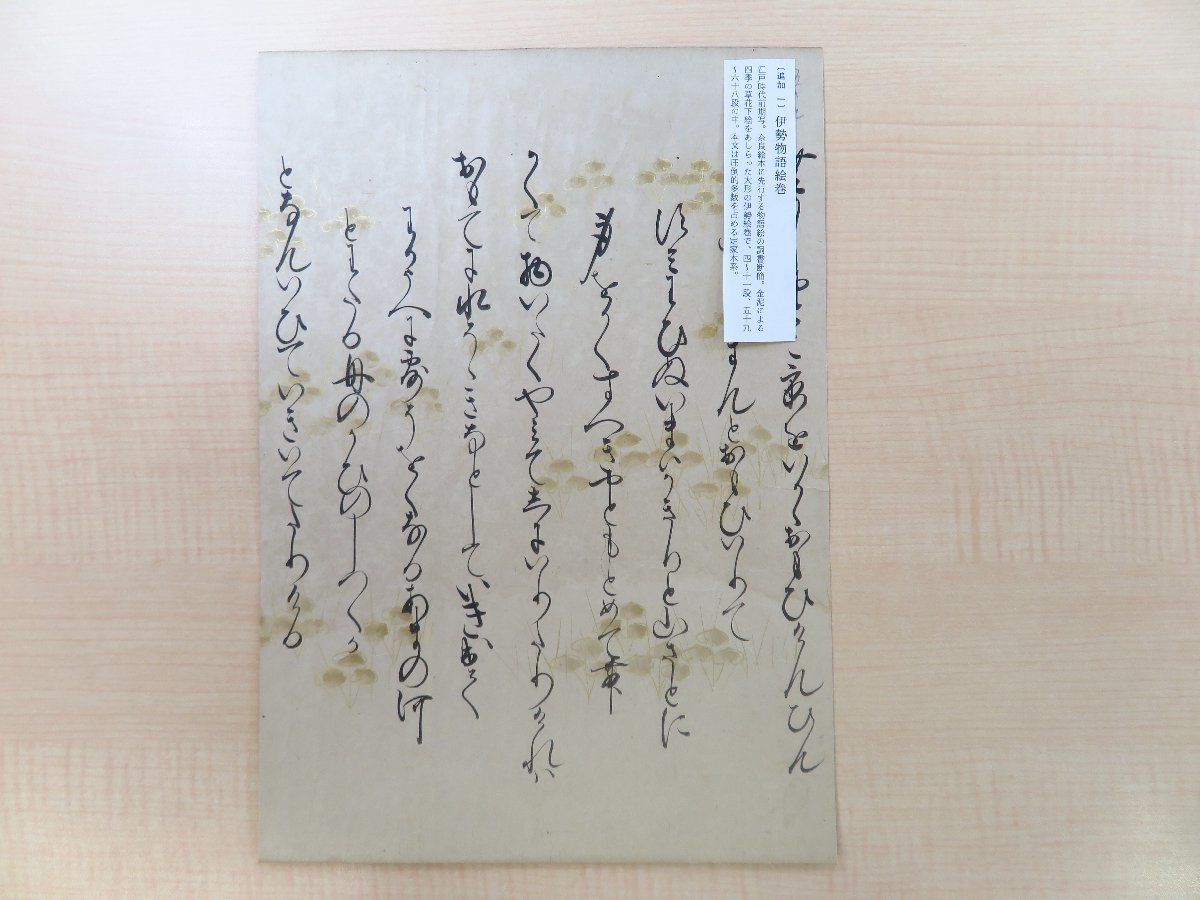 〔追加 一〕 伊勢物語絵巻
江戸時代前期写。奈良絵本に先行する物語絵の詞書断簡。金泥による
四季の草花下絵をあしらった大形の伊勢絵巻で、四~十一段、五十九
~六十八段の中。本文は圧倒的多数を占める定家本系。
京をいかゝおもひけんひん
まんとおもひいりて
すみわひぬいまはかきりと山さとに
身をかくすへきやともとめて
かくて物いたくやみてしにいりたりけれは
おもてに水そゝきなとしていき出て
わかうへに露そをくなるあまの河
とわたる舟のかひのしつくか
となんいひていきいてたりける